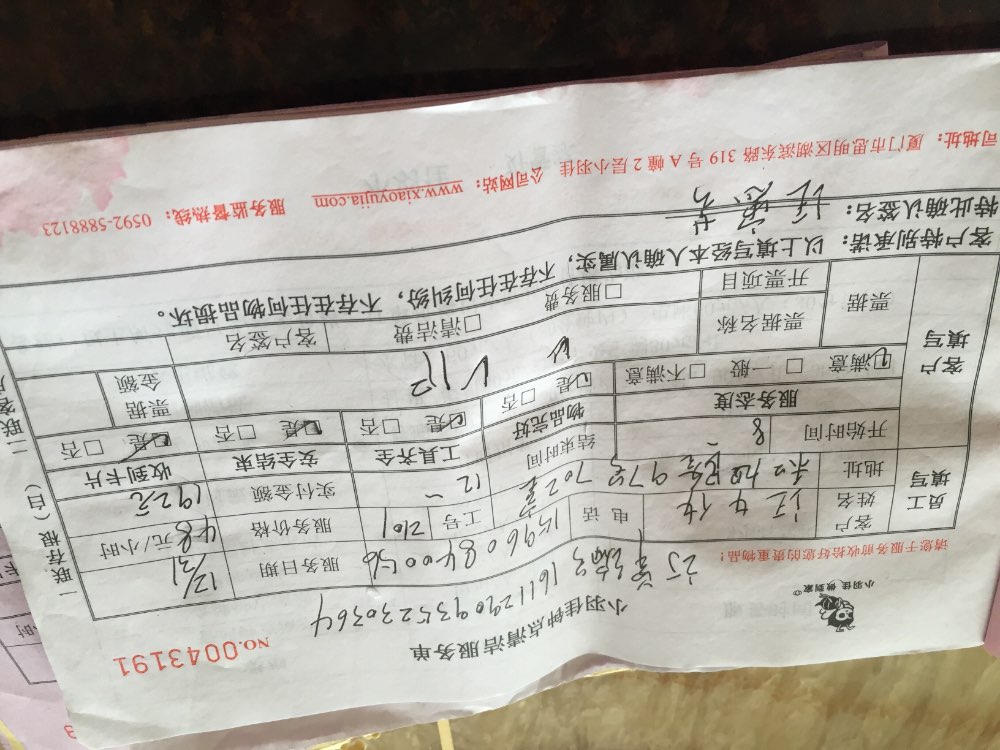 小羽佳 做到家
小羽佳钟点清洁服务单
NO.0043191
订单编号 1611290935230364
请您于服务前收拾好您的贵重物品！
员工填写
客户姓名 江女士 电话 15960840056 服务日期 12/31
地址 97号702室 工号 2101 服务价格 48元/小时
开始时间 8 结束时间 12 实付金额 192元
服务态度 物品完好 工具齐全 安全结束 收到卡片
客户填写
满意 一般 不满意 是 否 是 否 是 否 是 否
票据 票据名称 票据金额
开票项目 服务费 清洁费 客户签名
客户特别承诺：以上填写经本人确认属实，不存在任何纠纷，不存在任何物品损坏。
特此确认签名：
司地址：厦门市思明区湖滨东路 319 号 A 幢 2 层小羽佳 公司网站：www.xiaoyujia.com 服务监督热线：0592-5888123
一联存根（白）
二联客